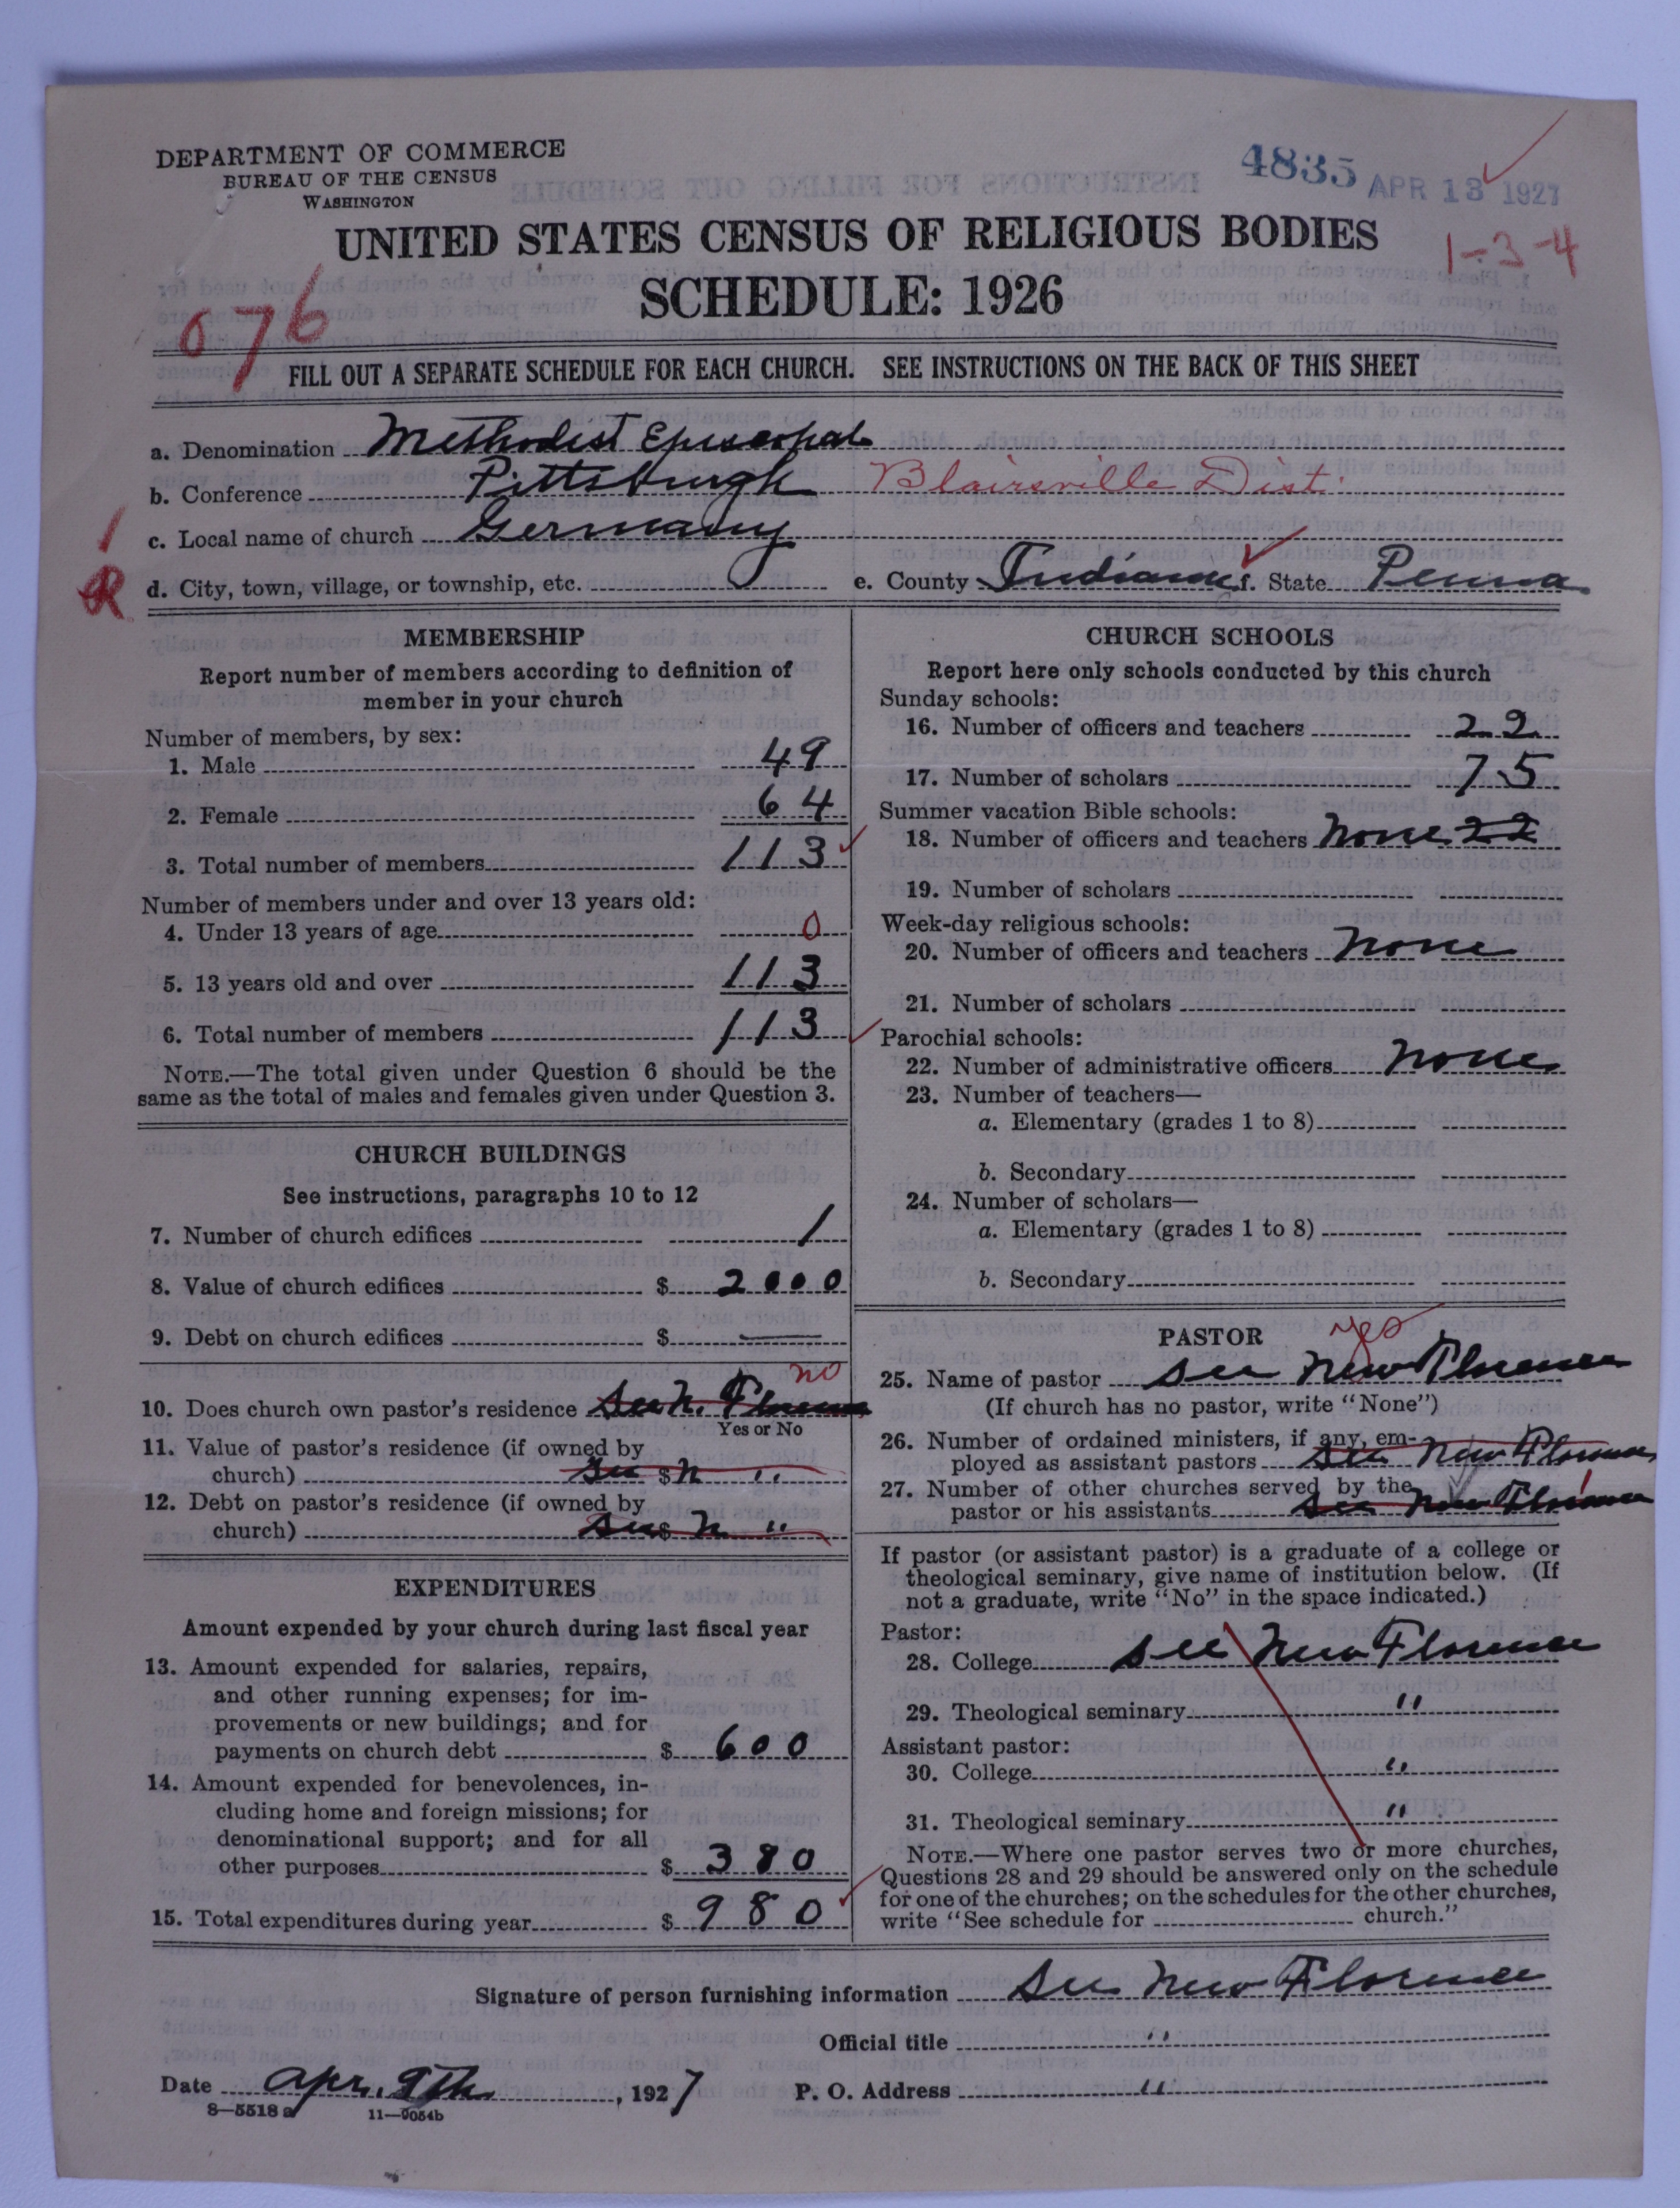 DEPARTMENT OF COMMERCE
BUREAU OF THE CENSUS
WASHINGTON
4835 APR 13 1927
UNITED STATES CENSUS OF RELIGIOUS BODIES
1-3-4
SCHEDULE: 1926
076
FILL OUT A SEPARATE SCHEDULE FOR EACH CHURCH. SEE INSTRUCTIONS ON THE BACK OF THIS SHEET
a. Denomination Methodist Episcopal
b. Conference Pittsburgh Blairsville Dist.
c. Local name of church Germany
R d. City, town, village, or township, etc. e. County Indiana f. State Penna
MEMBERSHIP
Report number of members according to definition of
member in your church
Number of members, by sex:
1. Male 49
2. Female 64
3. Total number of members 113
Number of members under and over 13 years old:
4. Under 13 years of age 0
5. 13 years old and over 113
6. Total number of members 113
NOTE.—The total given under Question 6 should be the
same as the total of males and females given under Question 3.
CHURCH BUILDINGS
See instructions, paragraphs 10 to 12
7. Number of church edifices 1
8. Value of church edifices $ 2000
9. Debt on church edifices $ —
no
10. Does church own pastor's residence See N. Florence
Yes or No
11. Value of pastor's residence (if owned by
church) See $ N "
12. Debt on pastor's residence (if owned by
church) See $ N "
EXPENDITURES
Amount expended by your church during last fiscal year
13. Amount expended for salaries, repairs,
and other running expenses; for im-
provements or new buildings; and for
payments on church debt $ 600
14. Amount expended for benevolences, in-
cluding home and foreign missions; for
denominational support; and for all
other purposes $ 380
15. Total expenditures during year $ 980
CHURCH SCHOOLS
Report here only schools conducted by this church
Sunday schools:
16. Number of officers and teachers 22
17. Number of scholars 75
Summer vacation Bible schools:
18. Number of officers and teachers None 22
19. Number of scholars
Week-day religious schools:
20. Number of officers and teachers None
21. Number of scholars
Parochial schools:
22. Number of administrative officers None
23. Number of teachers—
a. Elementary (grades 1 to 8)
b. Secondary
24. Number of scholars—
a. Elementary (grades 1 to 8)
b. Secondary
PASTOR yes
25. Name of pastor See New Florence
(If church has no pastor, write "None")
26. Number of ordained ministers, if any, em-
ployed as assistant pastors See New Florence
27. Number of other churches served by the
pastor or his assistants See New Florence
If pastor (or assistant pastor) is a graduate of a college or
theological seminary, give name of institution below. (If
not a graduate, write "No" in the space indicated.)
Pastor:
28. College See New Florence
29. Theological seminary "
Assistant pastor:
30. College "
31. Theological seminary "
NOTE.—Where one pastor serves two or more churches,
Questions 28 and 29 should be answered only on the schedule
for one of the churches; on the schedules for the other churches,
write "See schedule for church."
Signature of person furnishing information See New Florence
Official title "
Date Apr. 9th, 1927 P. O. Address "
8—5518 a 11—9054b